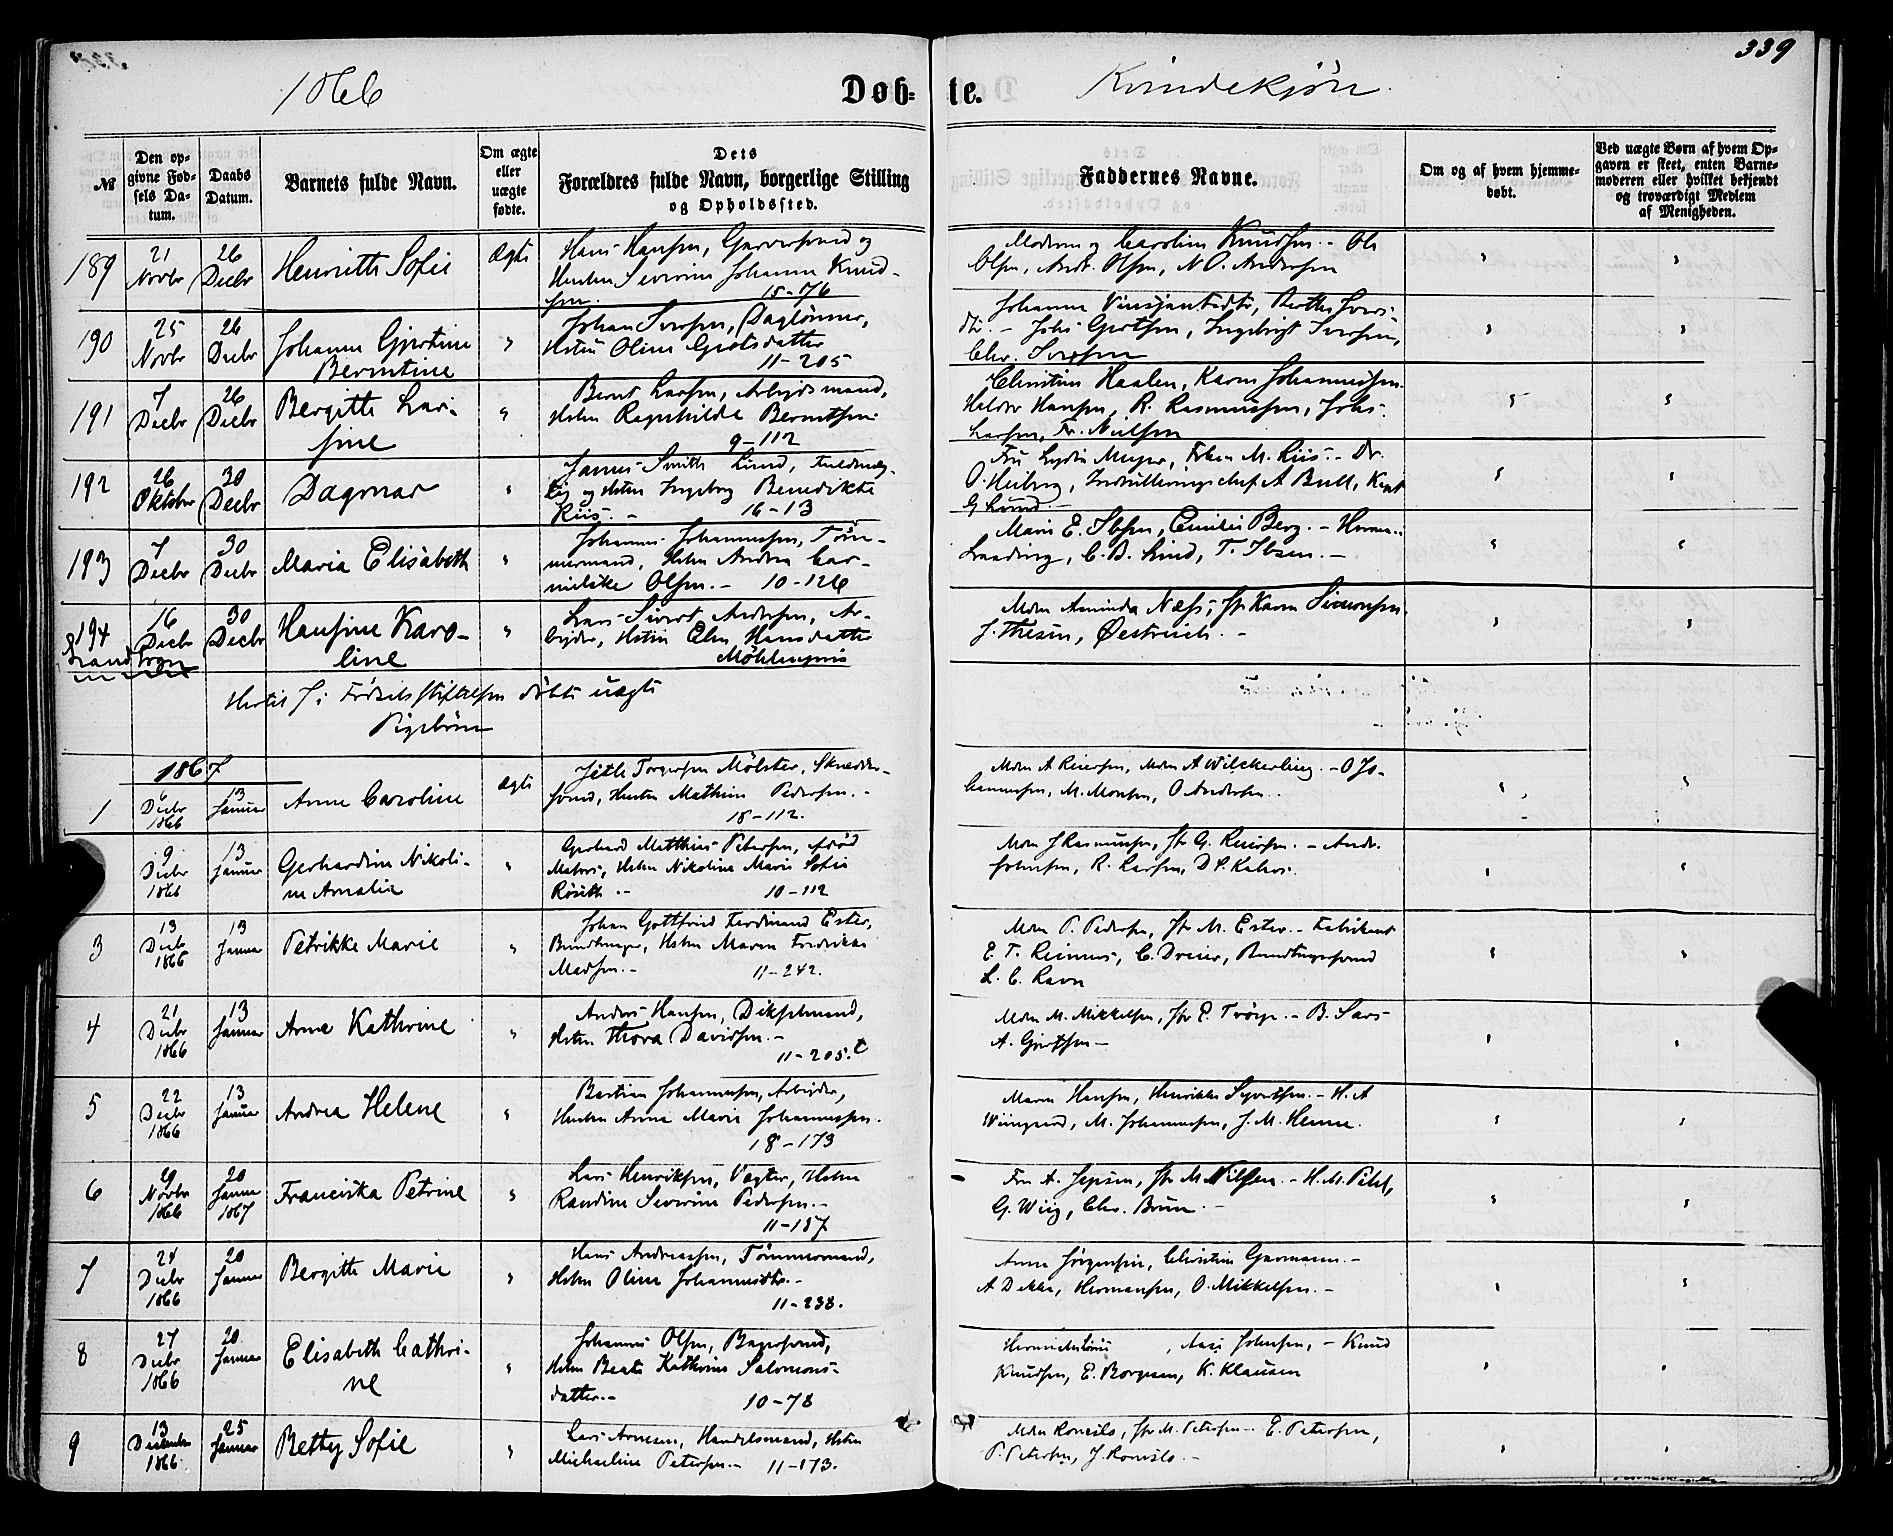 339
1866 Døb= te. Kvindekjøn.
№ Den op=givne Fød=sels Da=tum. Daabs Datum. Barnets fulde Navn. Om ægte eller uægte fødte. Dets Forældres fulde Navn, borgerlige Stilling og Opholdssted. Faddernes Navne. Om og af hvem hjemme=døbt. Ved uægte Børn af hvem Op=gaven er skeet, enten Barne=moderen eller hvilket bekjendt og troværdigt Medlem af Menigheden.
189 21 Novbr 26 Decbr Henriette Sofie Ægte
Hans Hansen, Garversvend og
Hustru Severine Johanne Knud-
sen. 15-76
Moderen og Caroline Knudsen. - Ole
Olsen, Andr. Olsen, N O. Andersen
190 25 Novbr 26 Decbr Johanne Gjertine
Berentine
Johan Iversen, Daglønner,
Hstru Oline Gjertsdatter
11-205
Johanne Vinsjansdtr, Berthe Ivers-
dtr. - Johs Gjertsen, Ingebrigt Iversen,
Chr. Iversen
191 7 Decbr 26 Decbr Bergitte Lau-
sine
Bernt Larsen, Arbejdsmand,
Hstru Ragnhilda Berentsen
9-112
Christine Haalen, Karen Johannessen
Halvor Hansen, R. Rasmussen, Johs
Larsen, Fr. Nielsen
192 26 Oktober 30 Decbr Dagmar
James Smith Lund, Fuldmæg-
tig og Hstru Ingeborg Benedikte
Riis. - 16-13
Fru Lydia Meyer, Frken M. Riis. - Dr.
O. Heiberg, Indrulleringschef A Bull, Kapt
G Lund.
193 7 Decbr 30 Decbr Maria Elisabeth
Johannes Johannessen, Tøm-
mermand, Hstru Andrea Cor-
nielske Olsen. - 10-126
Marie E. Ibsen, Emilie Berg. - Herm.
Lrading, C. B. Lind, T. Ibsen. -
194 16 Decbr 30 Decbr Hansine Karo-
line
Strand Sogn
Lars Sivert Andersen, Ar-
bejder, Hstru Elen Hansdatter
Møhlenpris
Mdm Aminda Næss, Fr Karen Simonsen.
J. Thesen, Østrich. -
Hertil 7 i Fødselsstiftelsen døbte uægte
Pigebørn
1867
1 6 Decbr 1866 13 Januar Anne Caroline Ægte
Jetle Torgersen Mølster, Skrædder-
svend, Hustru Mathine Pedersen. -
18-112.
Mdm A Reiersen, Mdm A Wilckerling. - O Jo-
hannessen, M. Monsen, O Andersen.
9 Decbr 1866 13 Januar Gerhardine Nikoli-
ne Amalia
Gerhard Matthias Petersen, afdød
Matros, Hstru Nikoline Marie Sofie
Roseth. - 10-112
Mdm J Rasmussen, Fr G. Reiersen. - Andr.
Johnsen, R. Larsen, D P. Kahrs.
3 13 Decb 1866 13 Januar Petrikke Marie
Johan Gottfried Ferdinand Ester,
Buntmager, Hstru Maren Fredrikke
Madsen. - 11-242.
Mdm P. Pedersen, Fr M. Ester. - Fabrikant
E. T. Reimers, C. Dreier, Buntmagersvend
L. C. Ravn
4 21 Decbr 1866 13 Januar Anna Kathrine
Anders Hansen, Dikselmand,
Hstru Thora Davidsen. -
11-205. c
Mdm M. Mikkelsen, Fr E. Troye. - B. Sars
A. Gjertsen -
5 22 Decbr 1866 13 Januar Andrea Helene
Bastian Johannessen, Arbejder,
Hustru Anna Marie Johannessen.
18-173
Maren Hansen, Henrikke Syvertsen. - H. A
Wiingaard, M. Johannessen, J. M. Henne.
6 9 Novbr 1866 20 Januar 1867 Franciska Petrine
Lars Henriksen, Vægter, Hstru
Randine Severine Pedersen. -
11-157
Fru A. Jepsen, Fr M Nilsen. - H. M. Pihl,
G. Wiig, Chr. Brun. -
7 24 Decbr 1866 20 Januar Bergitte Marie
Hans Andreassen, Tømmermand,
Hstru Oline Johannesdtr. -
11-238.
Anne Jørgensen, Christine Garmann. -
A Dekke, Hermansen, O. Mikkelsen. -
8 27 Decbr 1866 20 Januar Elisabeth Cathri-
ne
Johannes Olsen, Bagersvend,
Hstru Beate Kathrine Salomons-
datter. - 10-78
Johnsen, - Knud
Knudsen, E. Borgesen, K. Klausen
9 13 December 1866 25 Januar Betty Sofie
Lars Arnesen, Handelsmand, Hstru
Michaeline Petersen. - 11-173.
Mdm Ronesilo, Fr M. Petersen - E. Petersen,
P. Petersen, J. Ronesilo. -